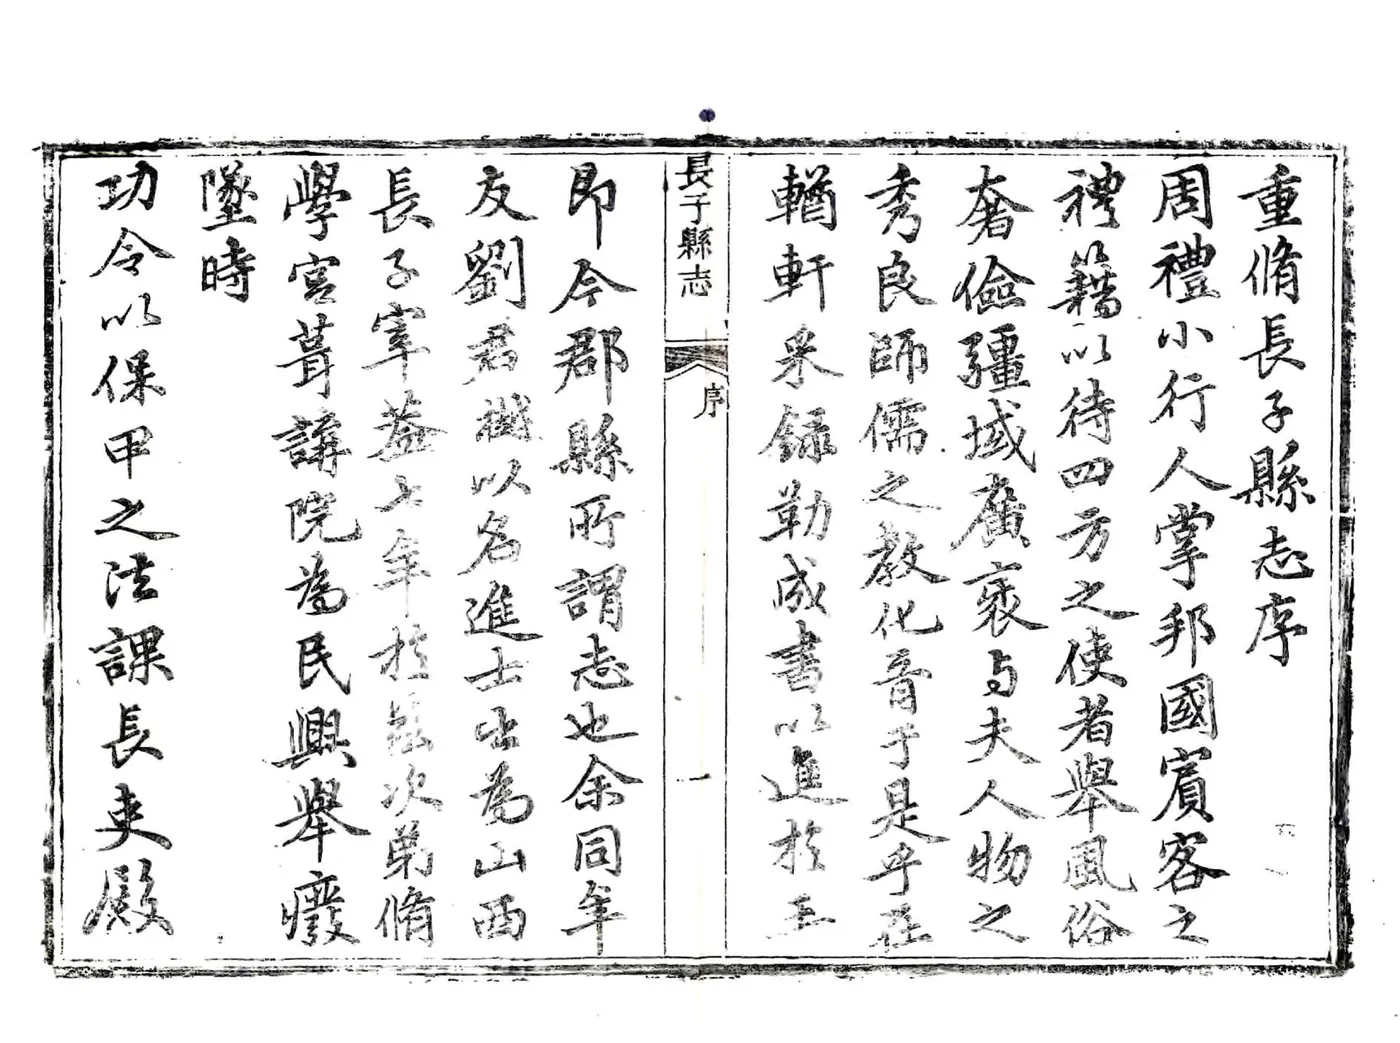 重脩長子縣志序
周禮小行人掌邦國賓客之
禮籍以待四方之使者舉風俗
奢儉疆域廣袤与夫人物之
秀良師儒之教化胥于是乎在
輶軒采録勒成書以進於王
長子縣志
序
一
即今郡縣所謂志也余同年
友劉君樾以名進士出為山西
長子宰葢七年於茲次第脩
學宮葺講院為民興舉癈
墜時
功令以保甲之法課長吏殿